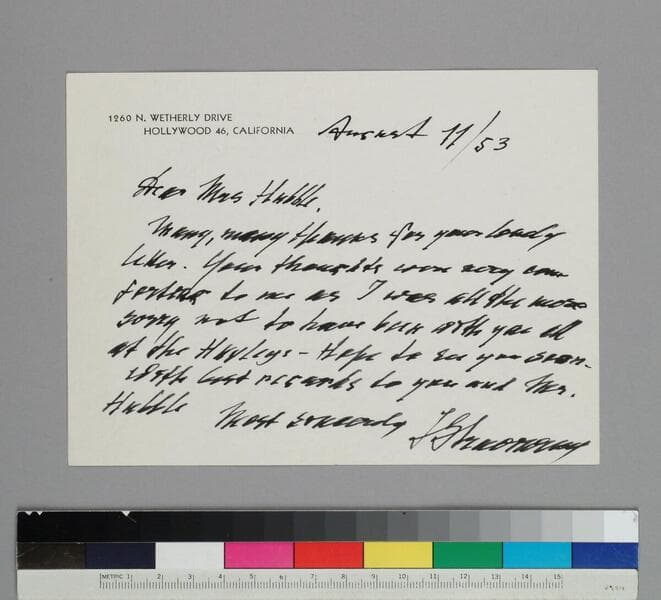 1260 N. WETHERLY DRIVE
HOLLYWOOD 46, CALIFORNIA
August 11/53
Dear Mrs Hubble,
Many, many thanks for your lovely
letter. Your thoughts were very com-
forting to me as I was all the more
sorry not to have been with you all
at the Huxleys - Hope to see you soon.
With best regards to you and Mr.
Hubble Most sincerely
I Stravinsky
METRIC 1 2 3 4 5 6 7 8 9 10 11 12 13 14 15